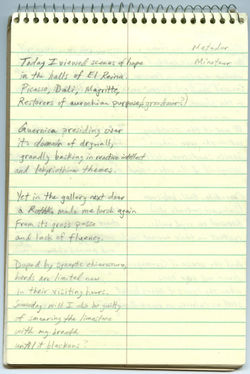 Matador
Minotaur
Today I viewed scenes of hope
in the halls of El Reina.
Picasso, Dali, Magritte,
Restorers of aurochian purpose
Guernica presiding over
its domain of drywall,
grandly basking in reaction
and labyrinthine themes.
Yet in the gallery next door
a Rothko made me lurch again
From its gross passe
and lack of fluency.
Duped by synaptic chiaroscuro,
herds are limited now
in their visiting hours.
Someday will I also be guilty
of smearing the limestone
with my breath
until it blackens?